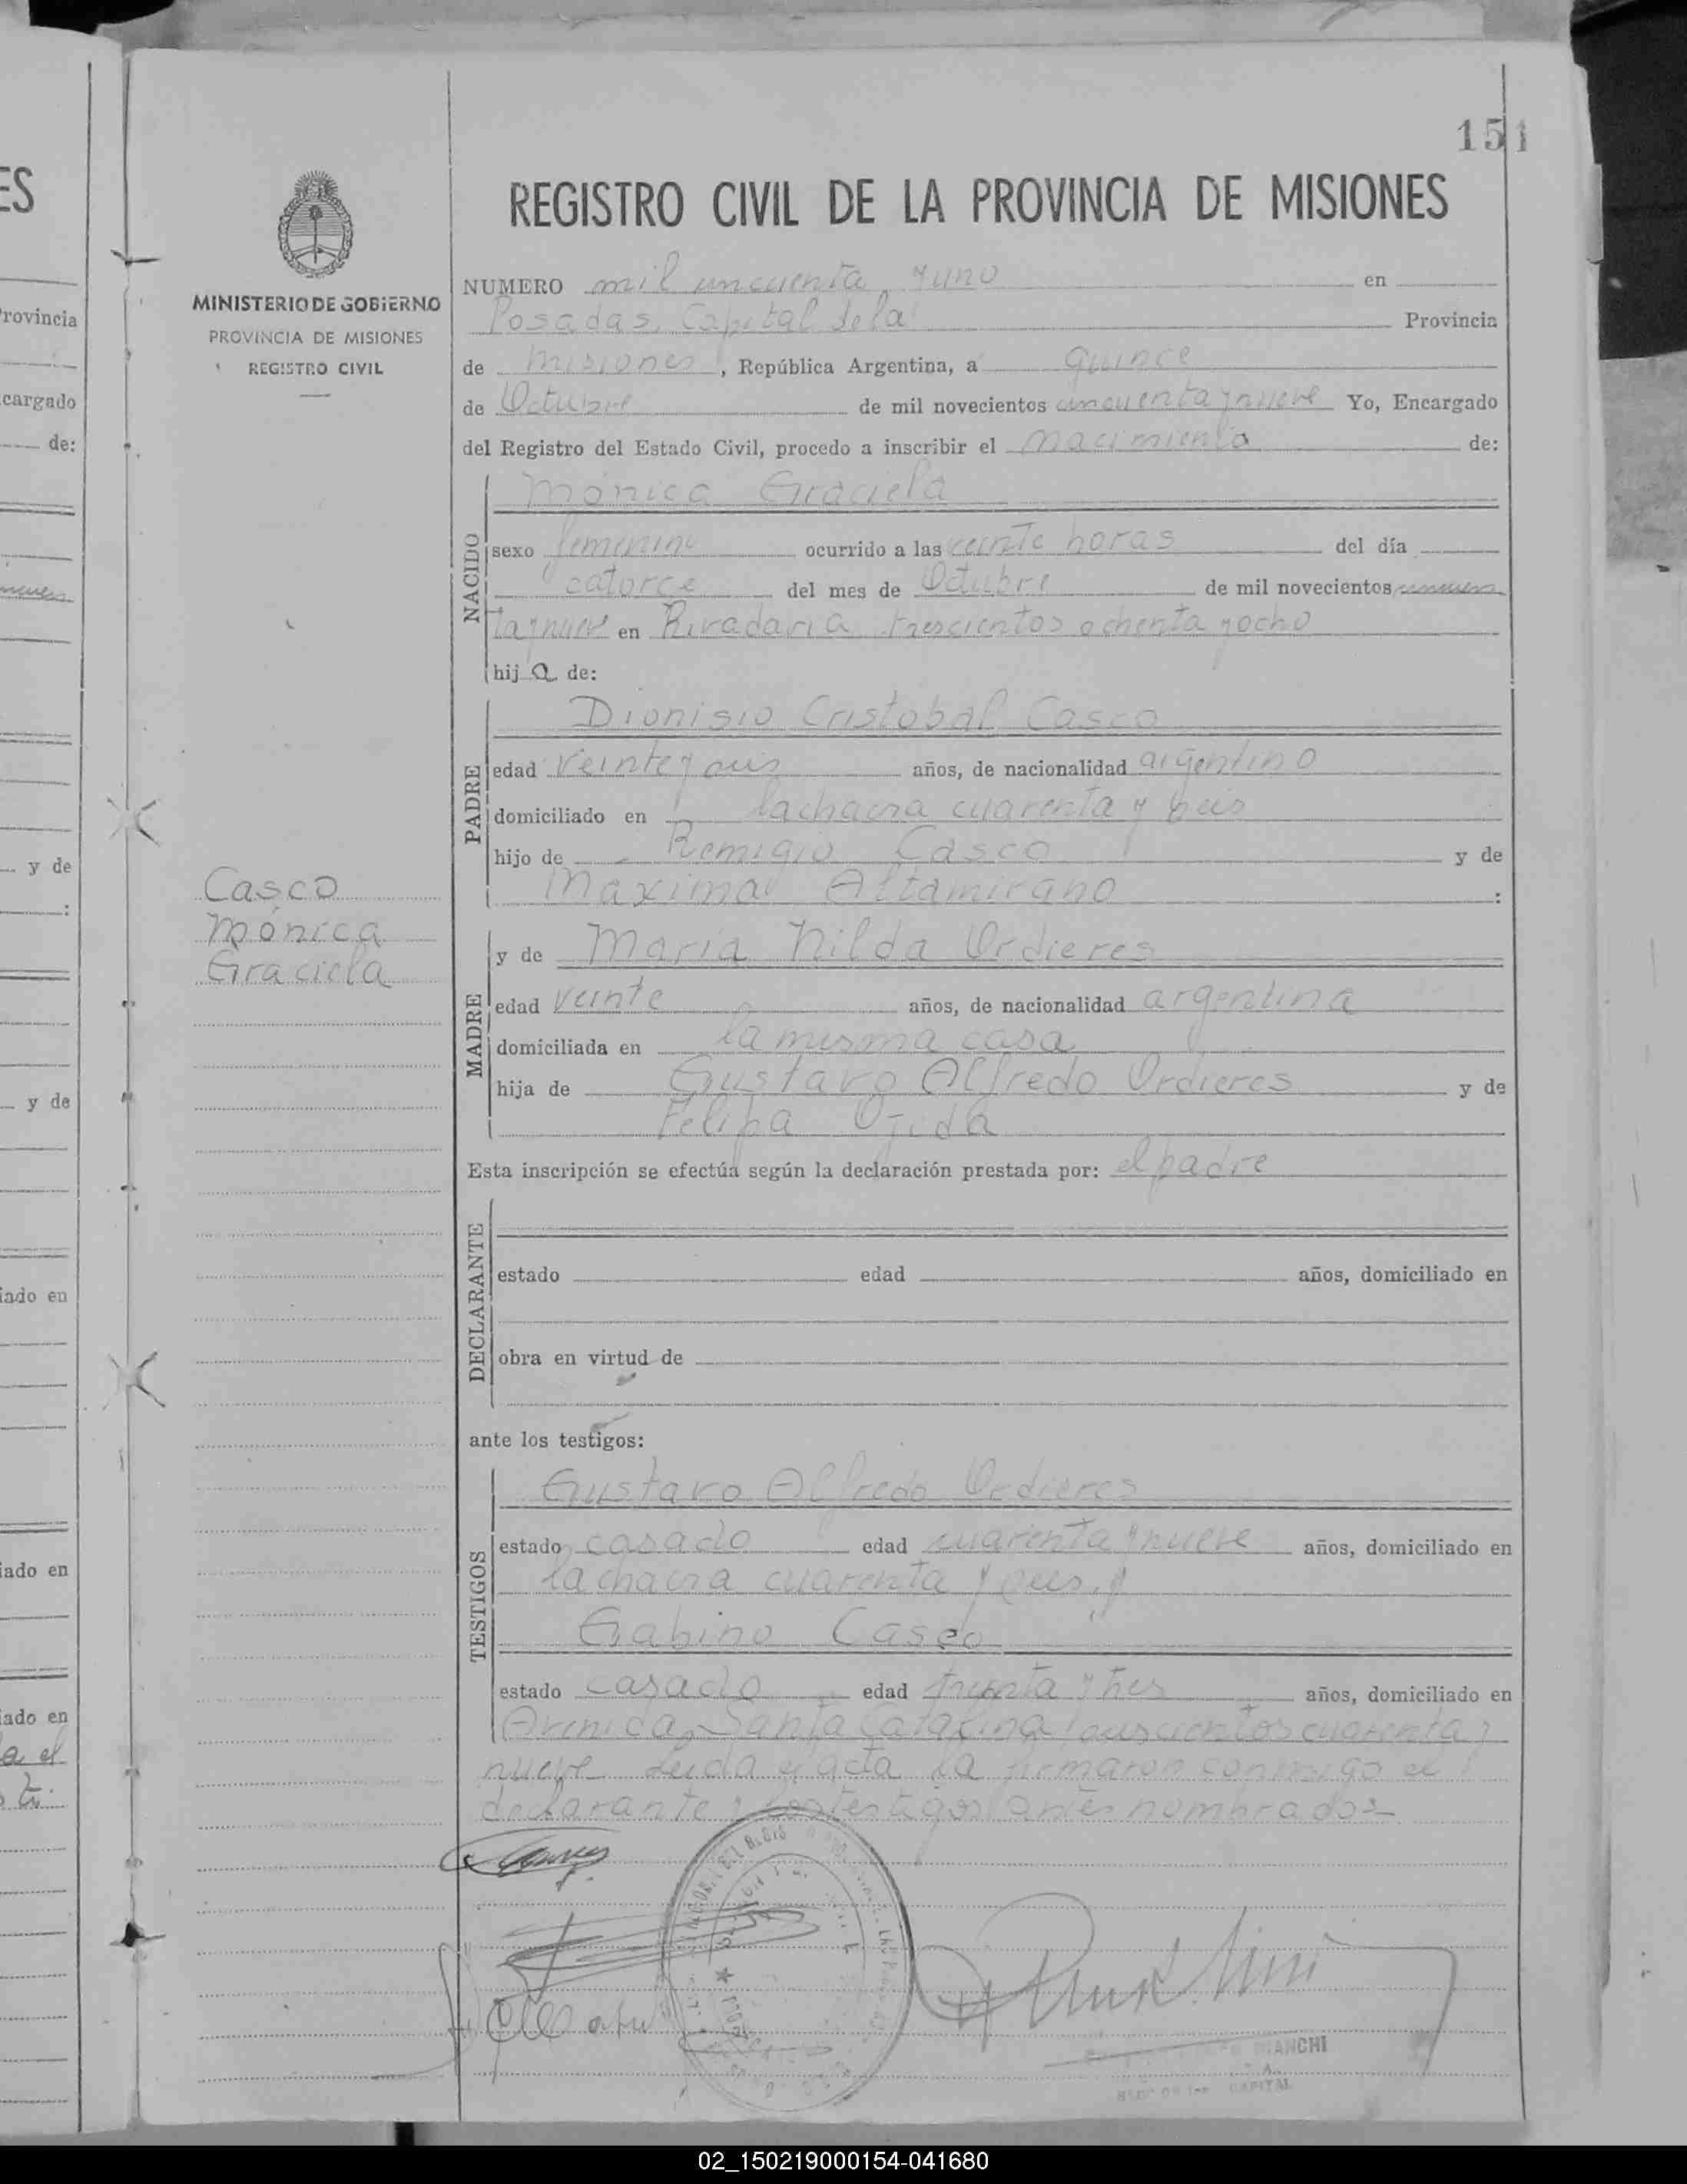 151
REGISTRO CIVIL DE LA PROVINCIA DE MISIONES
MINISTERIO DE GOBIERNO
PROVINCIA DE MISIONES
REGISTRO CIVIL
NUMERO mil cincuenta y uno en
Posadas, Capital de la Provincia
de Misiones, República Argentina, a quince
de Octubre de mil novecientos cincuenta y nueve Yo, Encargado
del Registro del Estado Civil, procedo a inscribir el nacimiento de:
NACIDO
Mónica Graciela
sexo femenino ocurrido a las veinte horas del día
catorce del mes de Octubre de mil novecientos cincuen
ta y nueve en Rivadavia trescientos ochenta y ocho
hija de:
PADRE
Dionisio Cristobal Casco
edad veinte y seis años, de nacionalidad argentino
domiciliado en la chacra cuarenta y seis
hijo de Remigio Casco y de
Maxima Altamirano :
Casco
Mónica
Graciela
MADRE
y de Maria Nilda Ordieres
edad veinte años, de nacionalidad argentina
domiciliada en la misma casa
hija de Gustavo Alfredo Ordieres y de
Felipa Ojeda
Esta inscripción se efectúa según la declaración prestada por: el padre
DECLARANTE
estado edad años, domiciliado en
obra en virtud de
ante los testigos:
TESTIGOS
Gustavo Alfredo Ordieres
estado casado edad cuarenta y nueve años, domiciliado en
la chacra cuarenta y seis, y
Gabino Casco
estado casado edad treinta y tres años, domiciliado en
Avenida Santa Catalina cuarenta y
nueve Leida el acta la firmaron conmigo el
declarante y los testigos antes nombrados
BIANCHI
CAPITAL
ES
Provincia
cargado
de:
y de
:
y de
iado en
iado en
iado en
a el
02_150219000154-041680